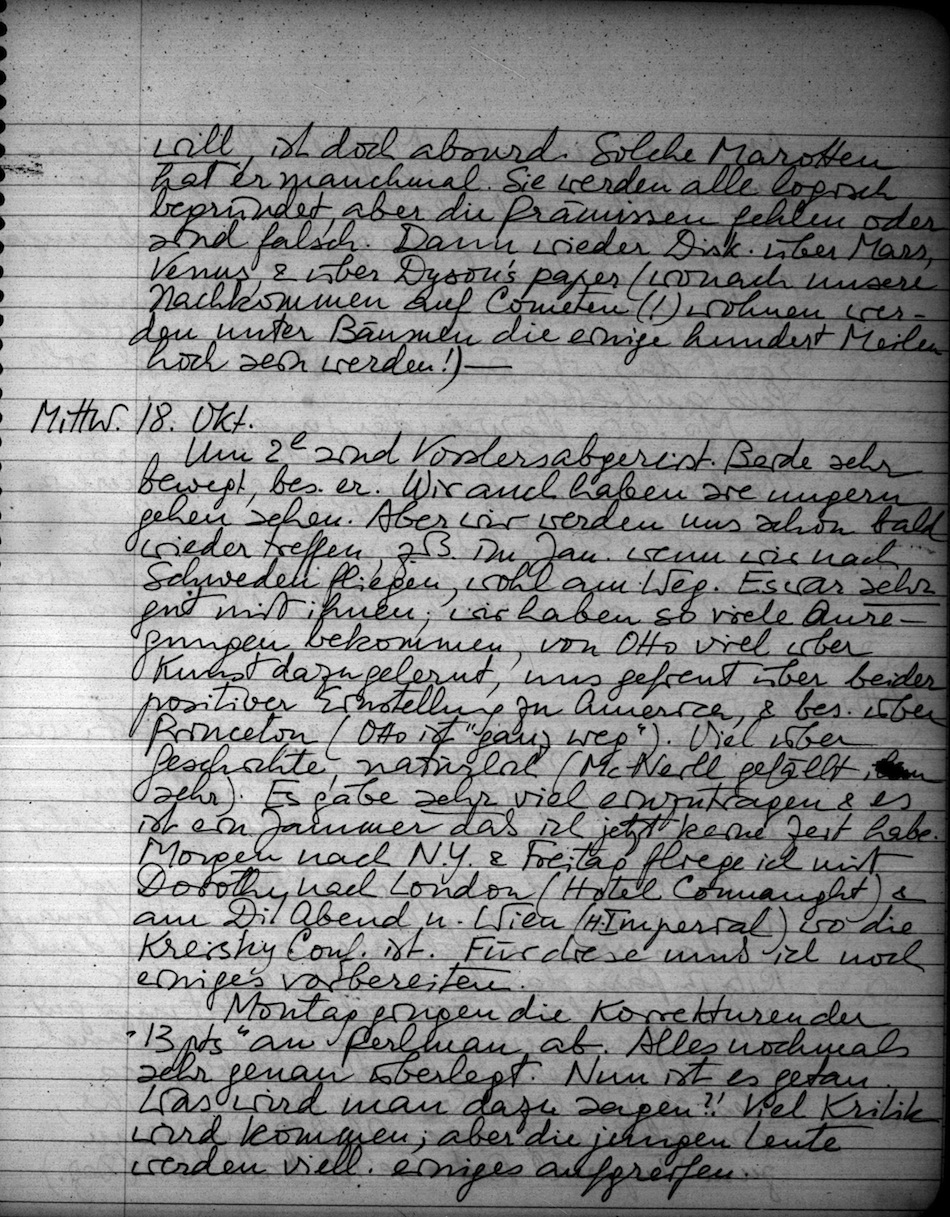 will, ist doch absurd. Solche Marotten
hat er manchmal. Sie werden alle logisch
begründet, aber die Prämissen fehlen oder
sind falsch. Dann wieder Disk. über Mars,
Venus, & über Dyson's paper (wonach unsere
Nachkommen auf Cometen (!) wohnen wer-
den unter Bäumen die einige hundert Meilen
hoch sein werden!) —
Mittw. 18. Okt.
Um 2h sind Vosslers abgereist. Beide sehr
bewegt, bes. er. Wir auch haben sie ungern
gehen sehen. Aber wir werden uns schon bald
wieder treffen, zB. im Jan. wenn wir nach
Schweden fliegen, wohl am Weg. Es war sehr
gut mit ihnen; wir haben so viele Anre-
gungen bekommen, von Otto viel über
Kunst dazugelernt, uns gefreut über beider
positiver Einstellung zu America, & bes. über
Princeton (Otto ist "ganz weg"). Viel über
Geschichte, natürlich (McNeill gefällt ihm
sehr). Es gäbe sehr viel einzutragen & es
ist ein Jammer das ich jetzt keine Zeit habe.
Morgen nach N.Y. & Freitag fliege ich mit
Dorothy nach London (Hotel Connaught) &
am Di. Abend n. Wien (H Imperial) wo die
Kreisky Conf. ist. Für diese muss ich noch
einiges vorbereiten.
Montag gingen die Korrekturen der
"13 pts" an Perlman ab. Alles nochmals
sehr genau überlegt. Nun ist es getan.
Was wird man dazu sagen?! Viel Kritik
wird kommen; aber die jungen Leute
werden viell. einiges aufgreifen.